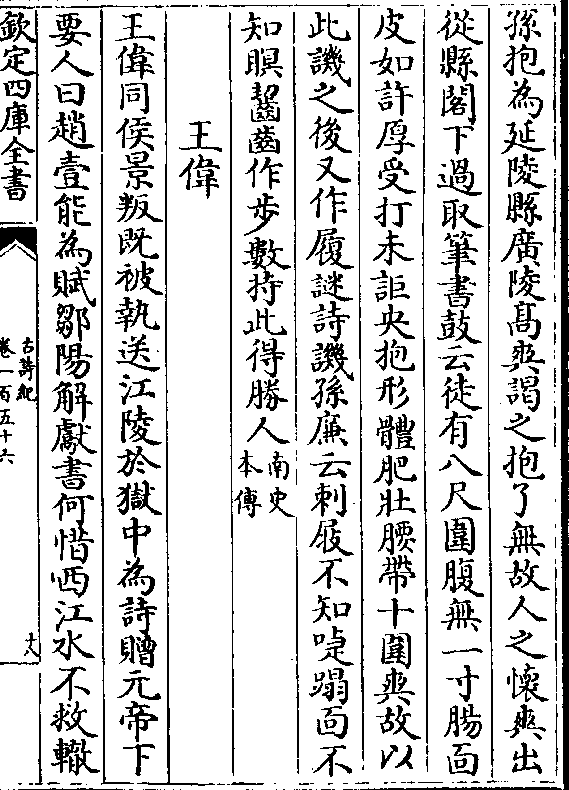 孫抱為延陵縣廣陵髙爽謁之抱了無故人之懷爽出
從縣閣下過取筆書鼓云徒有八尺圍腹無一寸腸面
皮如許厚受打未詎央抱形體肥壯腰帶十圍爽故以
此譏之後又作屐謎詩譏孫廉云刺鼻不知啑蹋面不
知瞋齧齒作步數持此得勝人南史
本傳
王偉
王偉同侯景叛既被執送江陵於獄中為詩贈元帝下
要人曰趙壹能為賦鄒陽解獻書何惜西江水不救轍
欽定四庫全書
古詩紀
卷一百五十六
十八